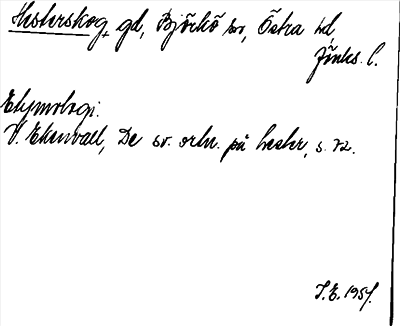 Hesterskog, gd, Björkö sn, Östra hd,
Jönk. l.
Etymologi:
V. Ekenvall, De sv. ortn. på hester, s. 72.
I.E. 1957.